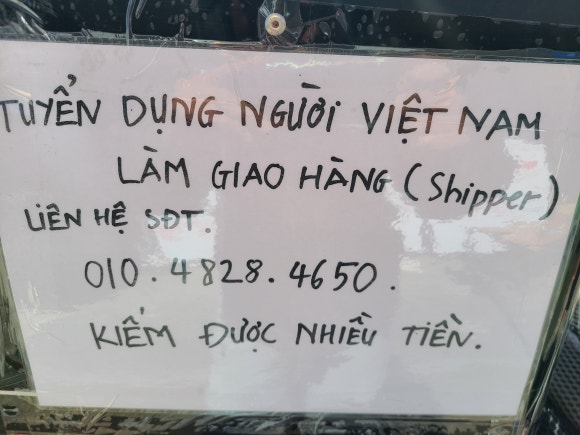 TUYỂN DỤNG NGƯỜI VIỆT NAM
LÀM GIAO HÀNG (Shipper)
LIÊN HỆ SĐT.
010.4828.4650.
KIẾM ĐƯỢC NHIỀU TIỀN.